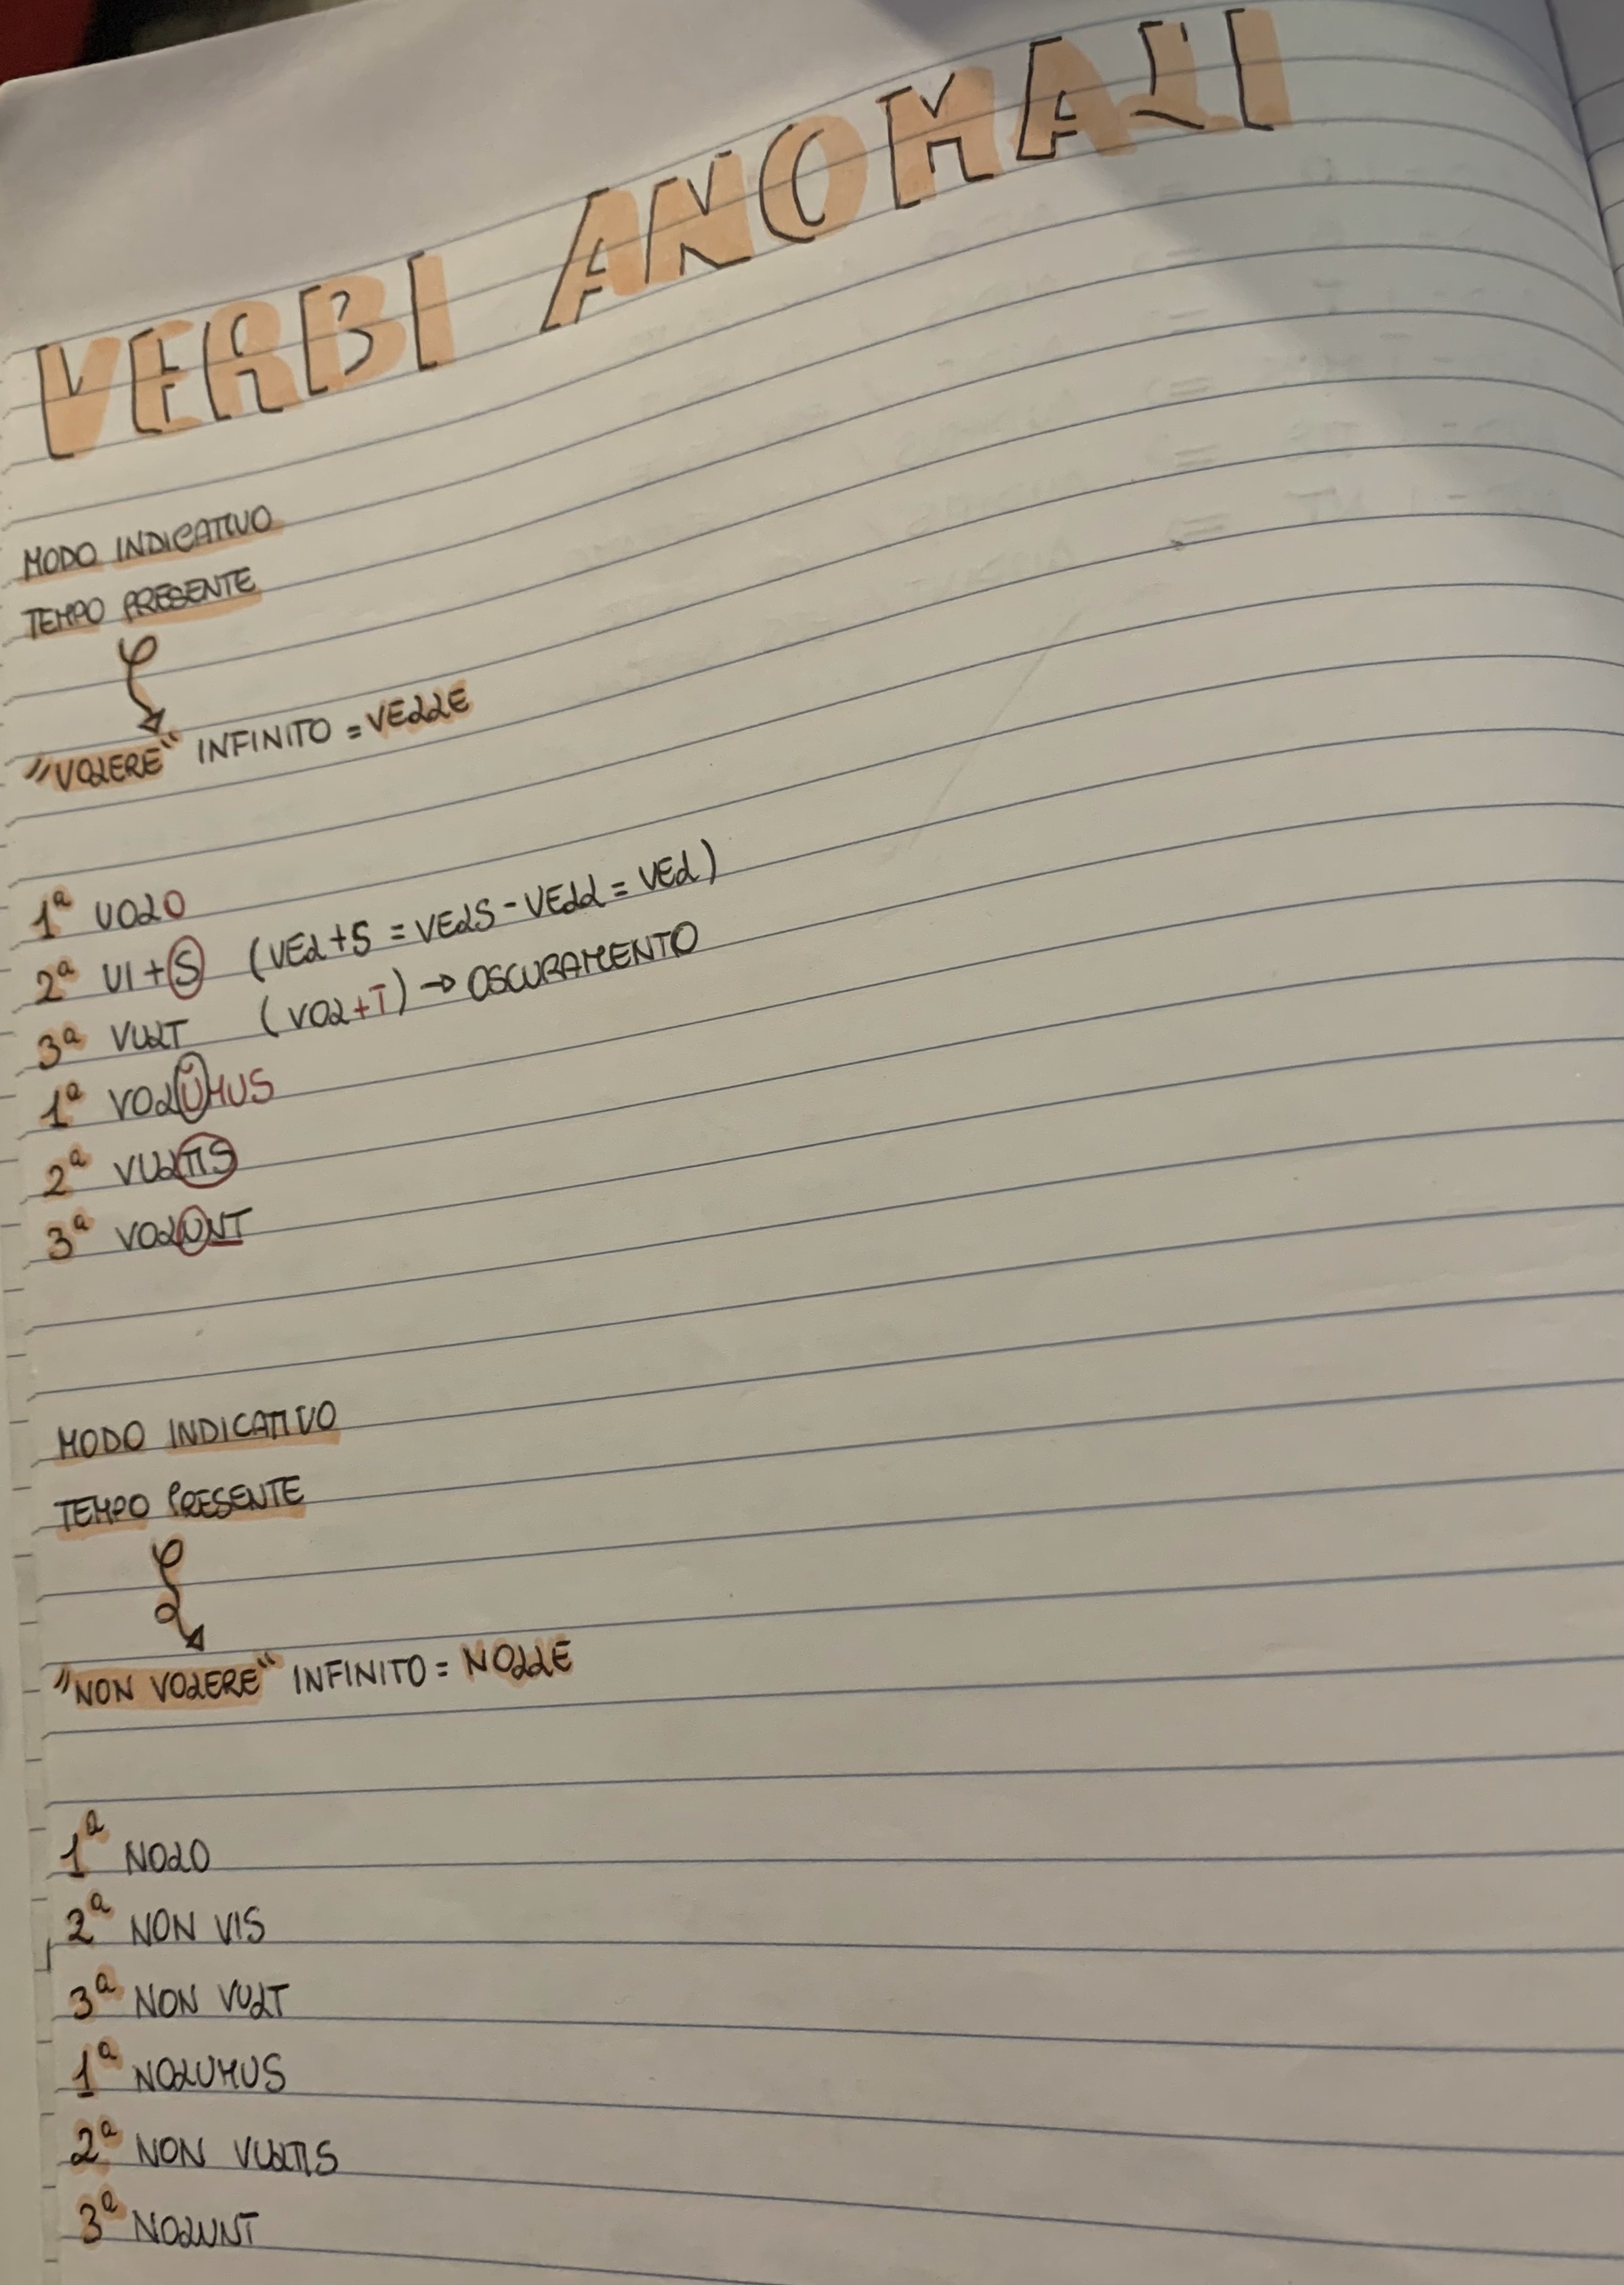 VERBI ANOMALI
MODO INDICATIVO
TEMPO PRESENTE
"VOLERE" INFINITO = VELLE
1ª VOLO
2ª VI+S (VEL+S = VELS - VELL = VEL)
3ª VULT (VOL+T) → OSCURAMENTO
1ª VOLŬMUS
2ª VULTIS
3ª VOLUNT
MODO INDICATIVO
TEMPO PRESENTE
"NON VOLERE" INFINITO = NOLLE
1ª NOLO
2ª NON VIS
3ª NON VULT
1ª NOLUMUS
2ª NON VULTIS
3ª NOLUNT